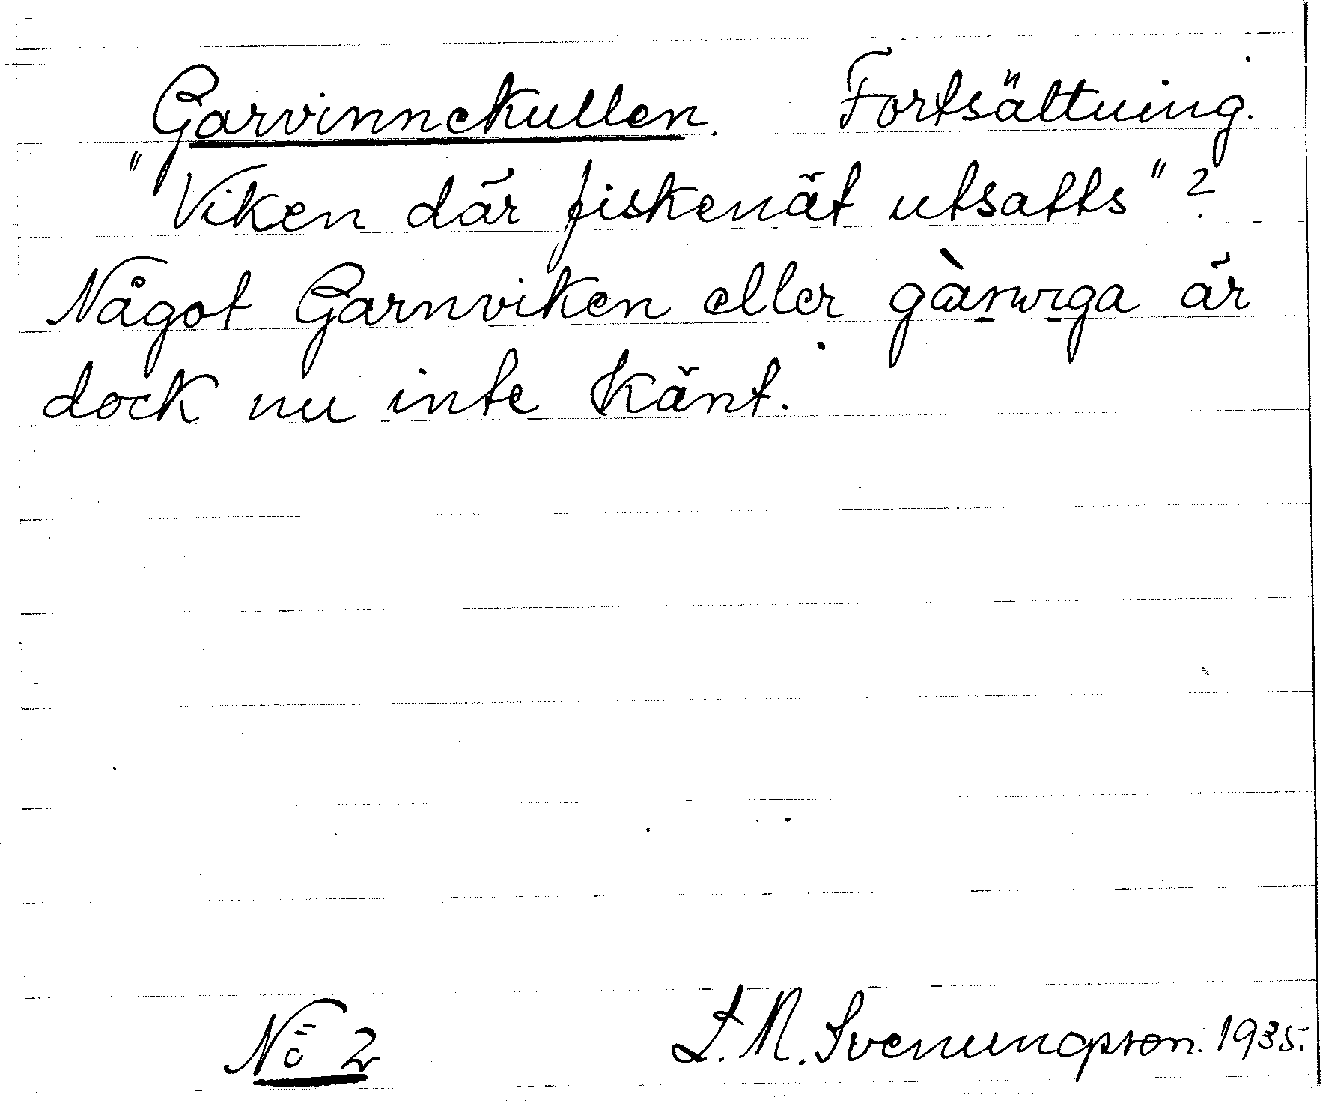 Garvinnekullen. Fortsättning.
"Viken där fiskenät utsatts"?
Något Garnviken eller gàrnvıga är
dock nu inte känt.
No 2 L. M. Svenungsson. 1935.